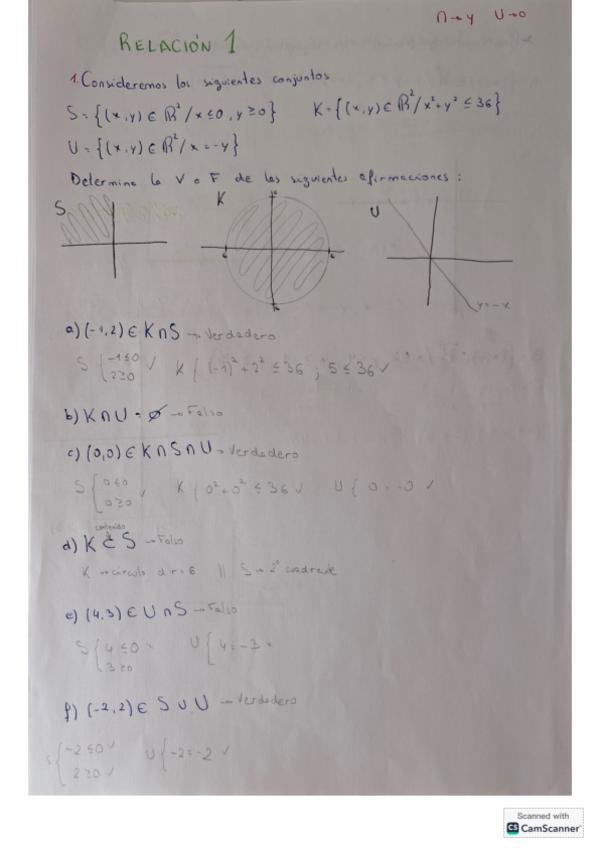 ∩→y U→o
RELACIÓN 1
1. Consideremos los siguientes conjuntos
S={(x,y)∈ℝ²/x≤0, y≥0} K={(x,y)∈ℝ²/x²+y²≤36}
U={(x,y)∈ℝ²/x=-y}
Determine la V o F de las siguientes afirmaciones:
S K U
y=-x
a) (-1,2)∈K∩S → Verdadero
S{-1≤0 ✓ K{(-1)²+2²≤36; 5≤36 ✓
2≥0
b) K∩U=∅ → Falso
c) (0,0)∈K∩S∩U → Verdadero
S{0≤0 ✓ K{0²+0²≤36 ✓ U{0=-0 ✓
0≥0
contenido
d) K⊂S → Falso
K→círculo d r=6 || S→2º cuadrante
e) (4,3)∈U∩S → Falso
S{4≤0 × U{4=-3 ×
3≥0
f) (-2,2)∈S∪U → Verdadero
S{-2≤0 ✓ U{-2=-2 ✓
2≥0 ✓
Scanned with
CS CamScanner